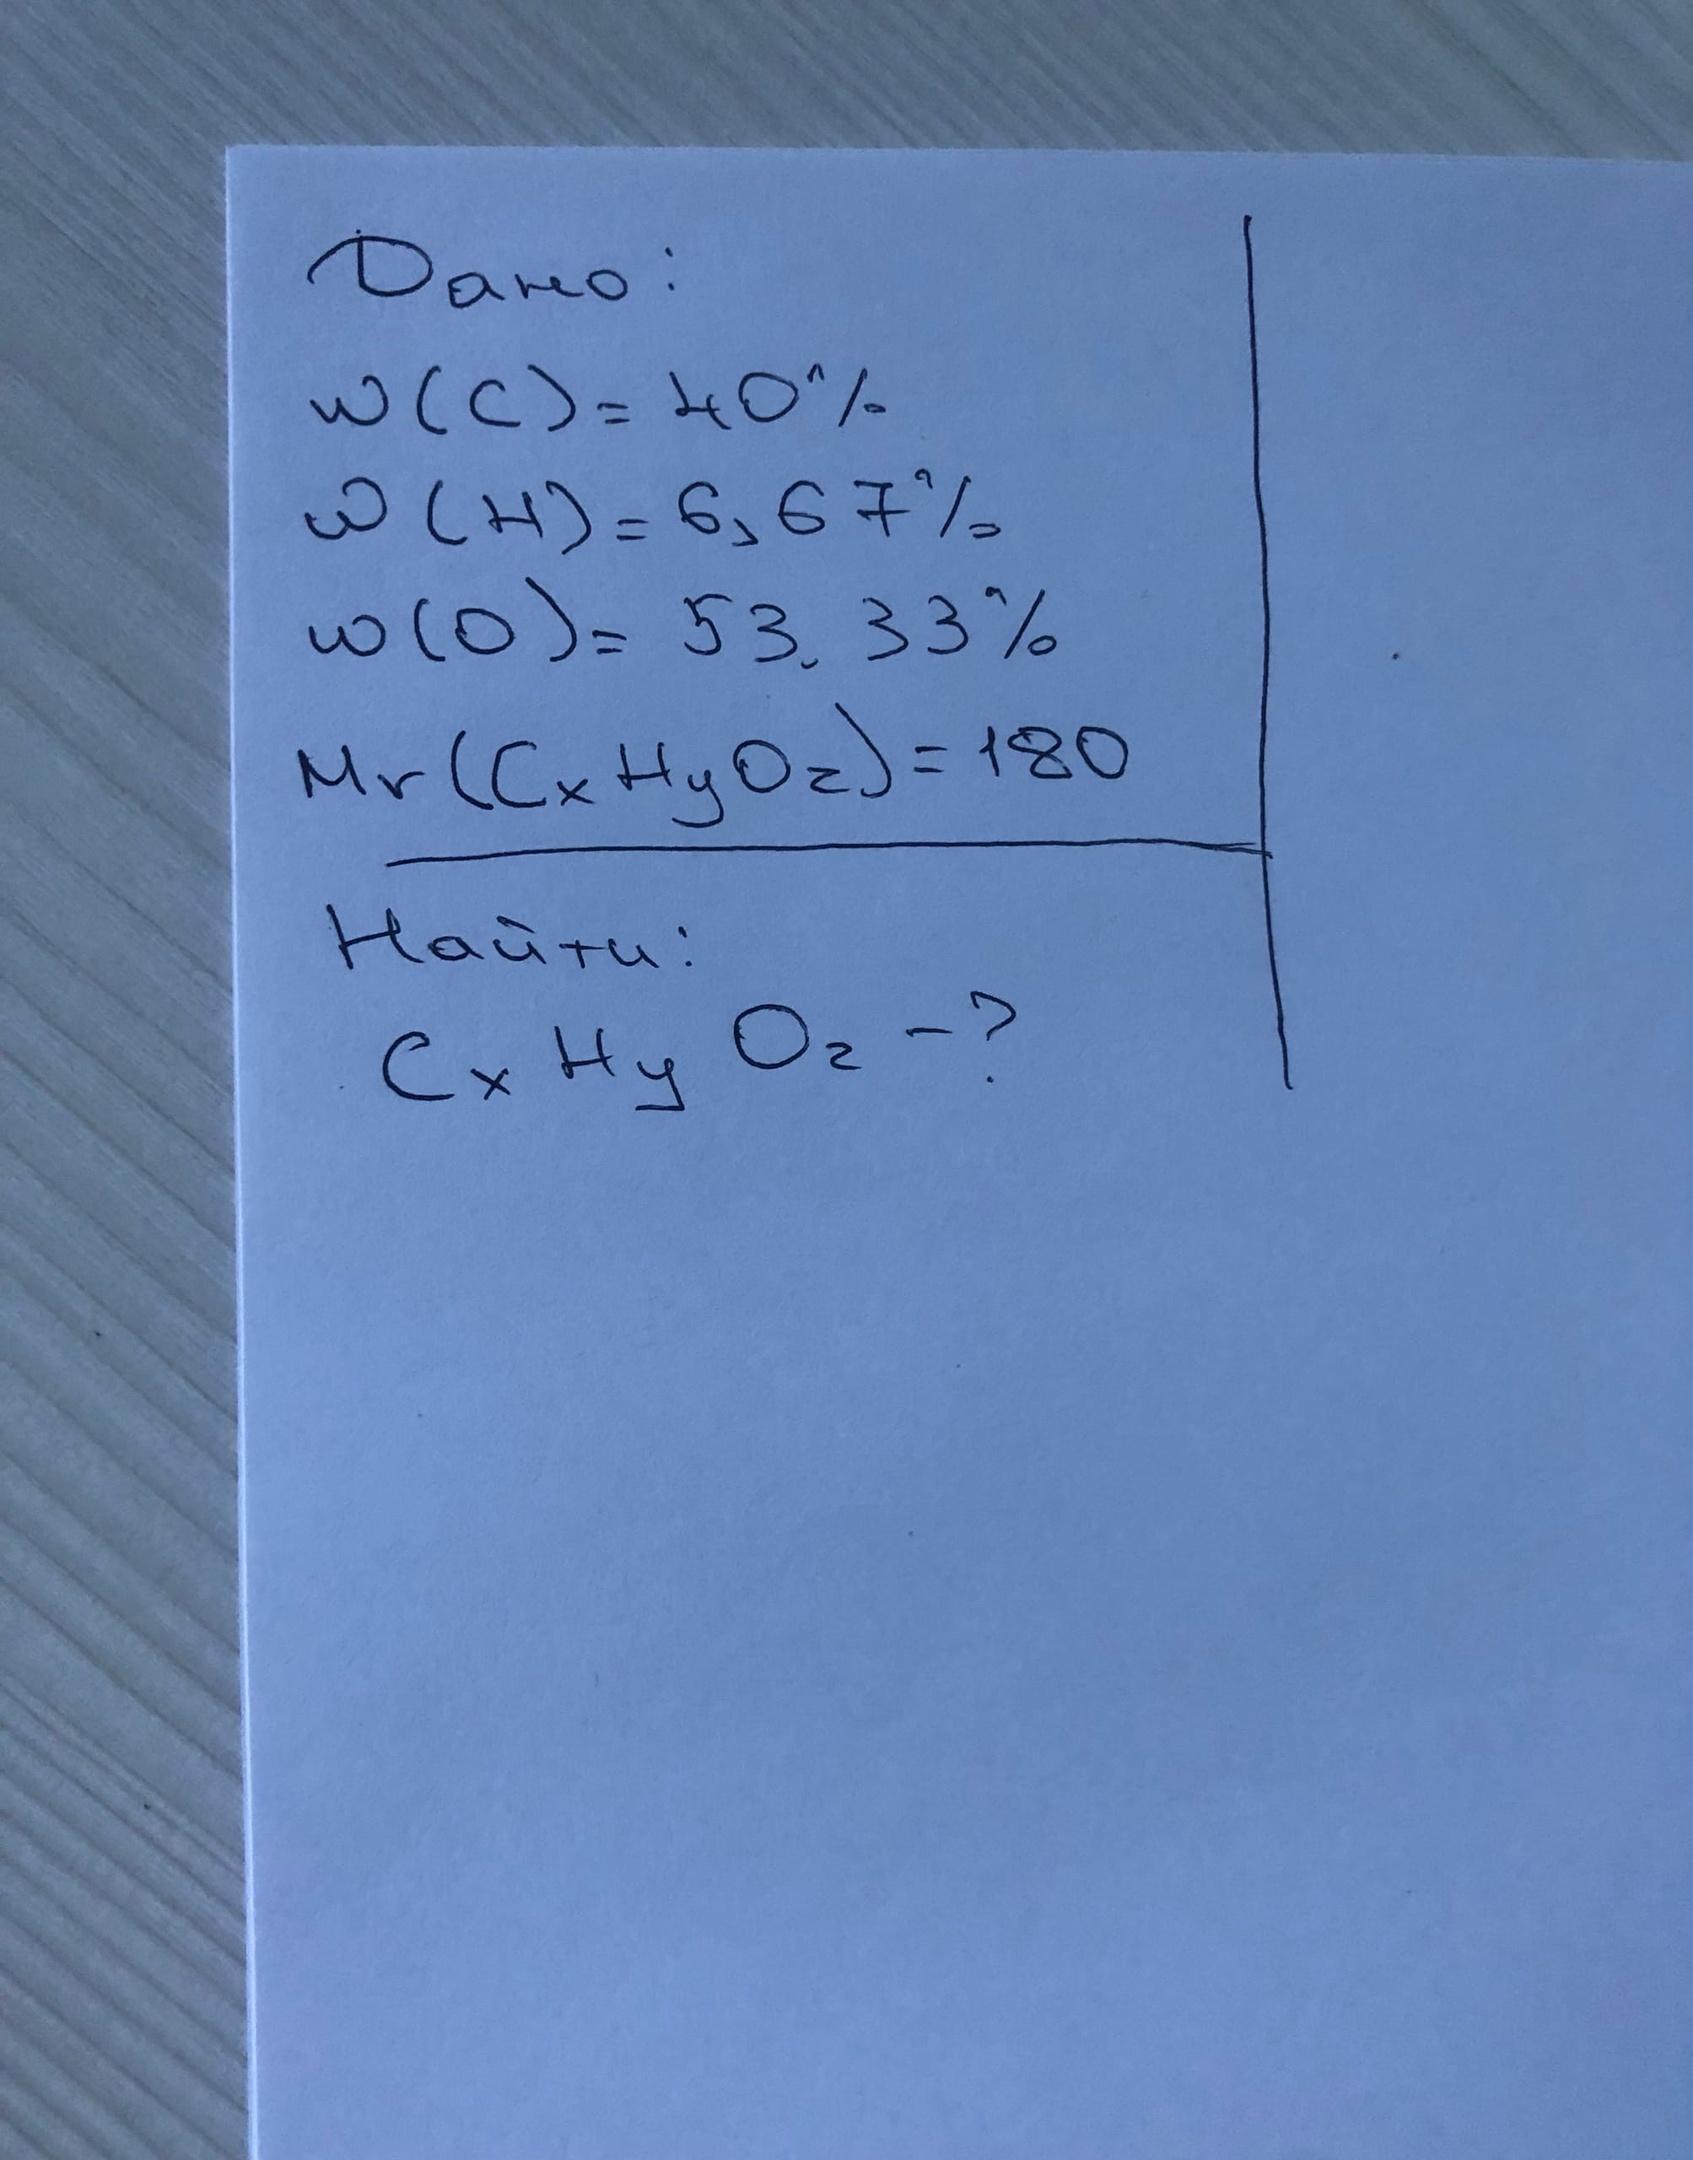 Дано:
w(C)=40%
w(H)=6,67%
w(O)=53,33%
Mr(CxHyOz)=180
Найти:
CxHyOz-?